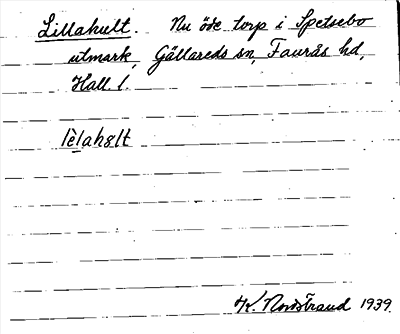 Lillahult. Nu öde torp i Spetsebo
utmark, Gällareds sn, Faurås hd,
Hall l.
lèlahɵlt
K. Nordstrand 1939.